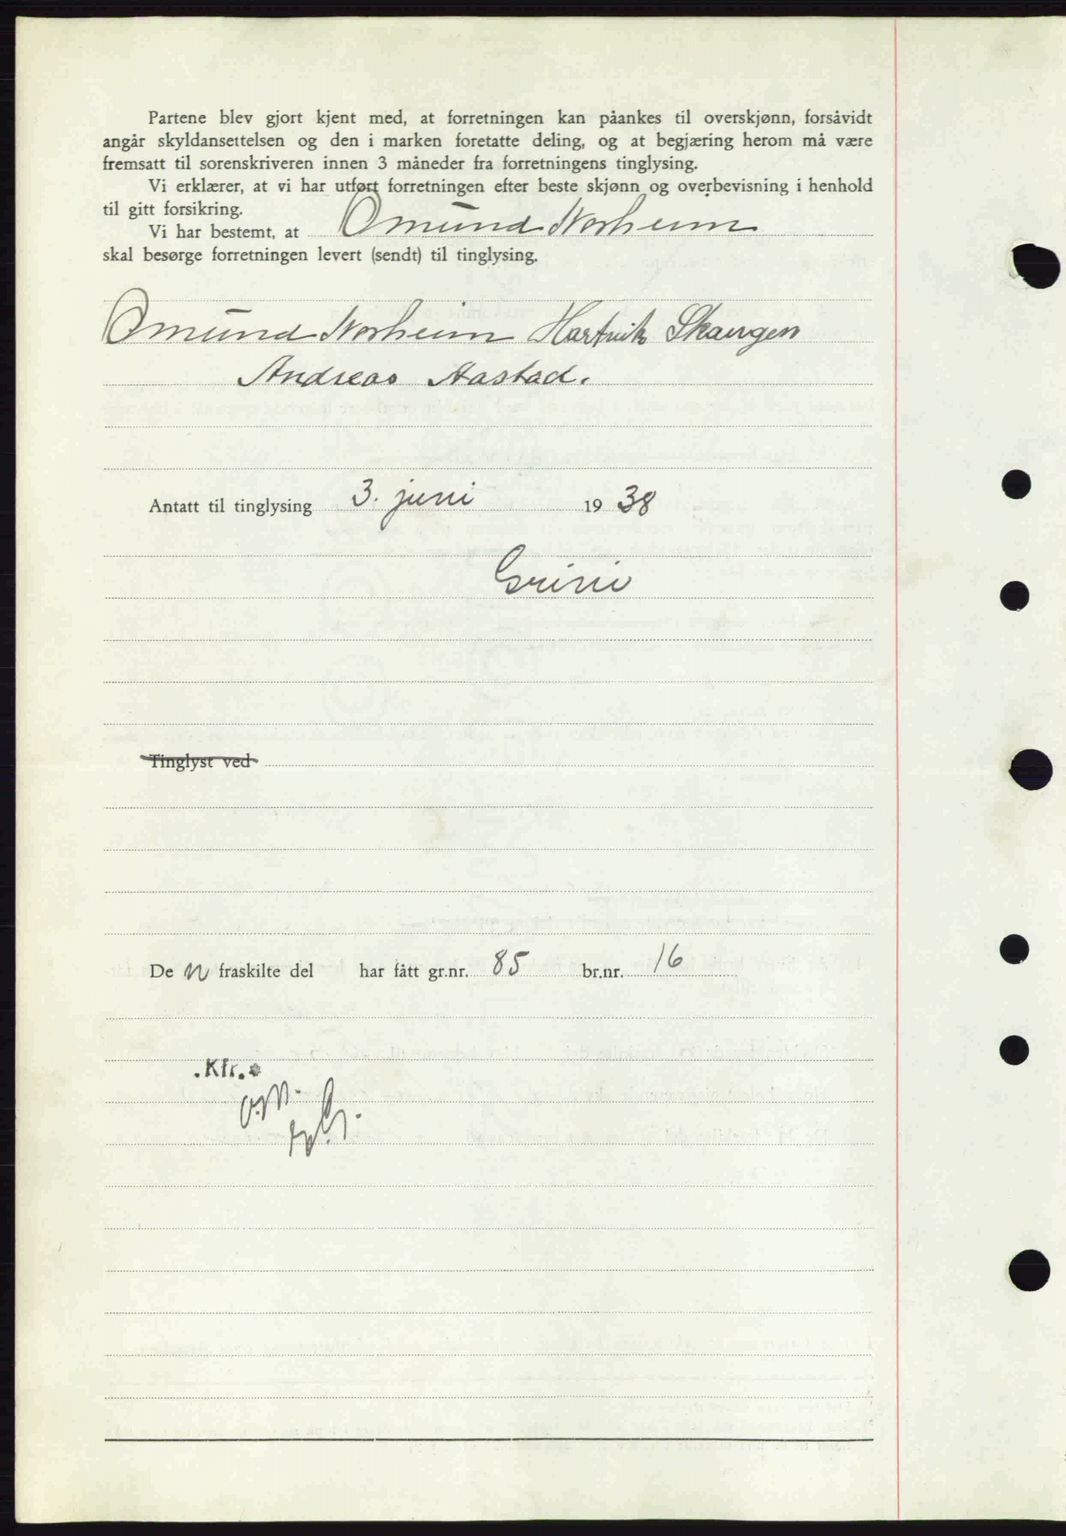 Partene blev gjort kjent med, at forretningen kan påankes til overskjønn, forsåvidt
angår skyldansettelsen og den i marken foretatte deling, og at begjæring herom må være
fremsatt til sorenskriveren innen 3 måneder fra forretningens tinglysing.
Vi erklærer, at vi har utført forretningen efter beste skjønn og overbevisning i henhold
til gitt forsikring.
Vi har bestemt, at Omund Norheim
skal besørge forretningen levert (sendt) til tinglysing.
Omund Norheim Hartvik Skaugen
Andreas Aastad.
Antatt til tinglysing 3. juni 1938
Grini
Tinglyst ved
De n fraskilte del har fått gr.nr. 85 br.nr. 16
.Kfr.